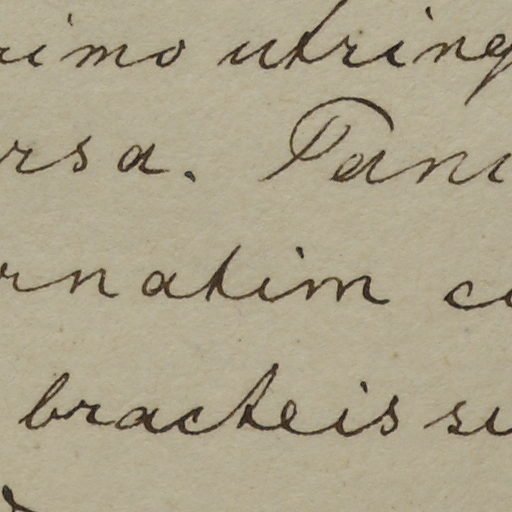 rimo utring
rsa. Pani
rnatim co
bracteis su